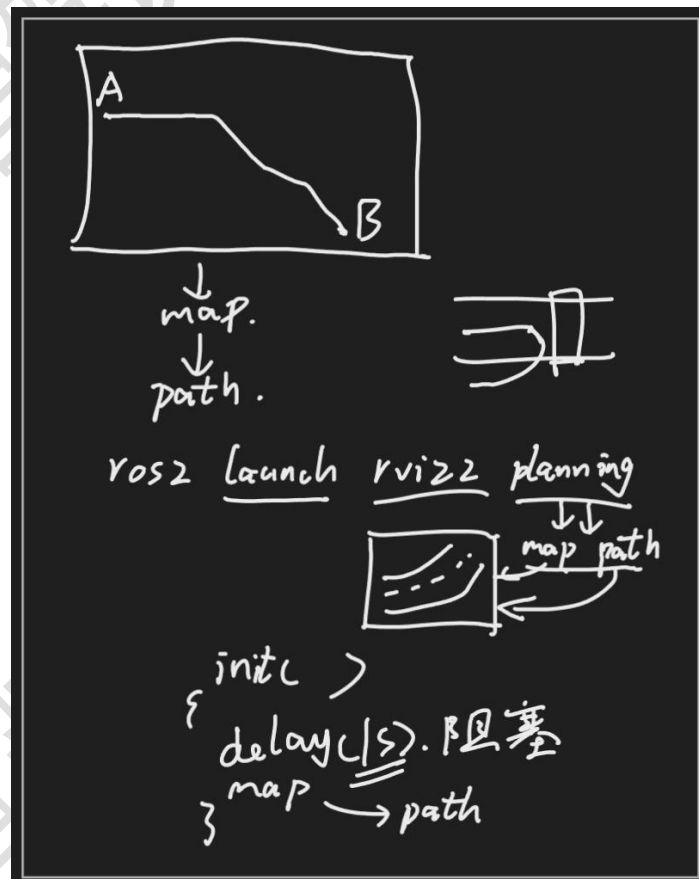 A
B
map.
path.
ros2 launch rviz2 planning
map path
init( )
{
delay(1s).阻塞
map → path
}